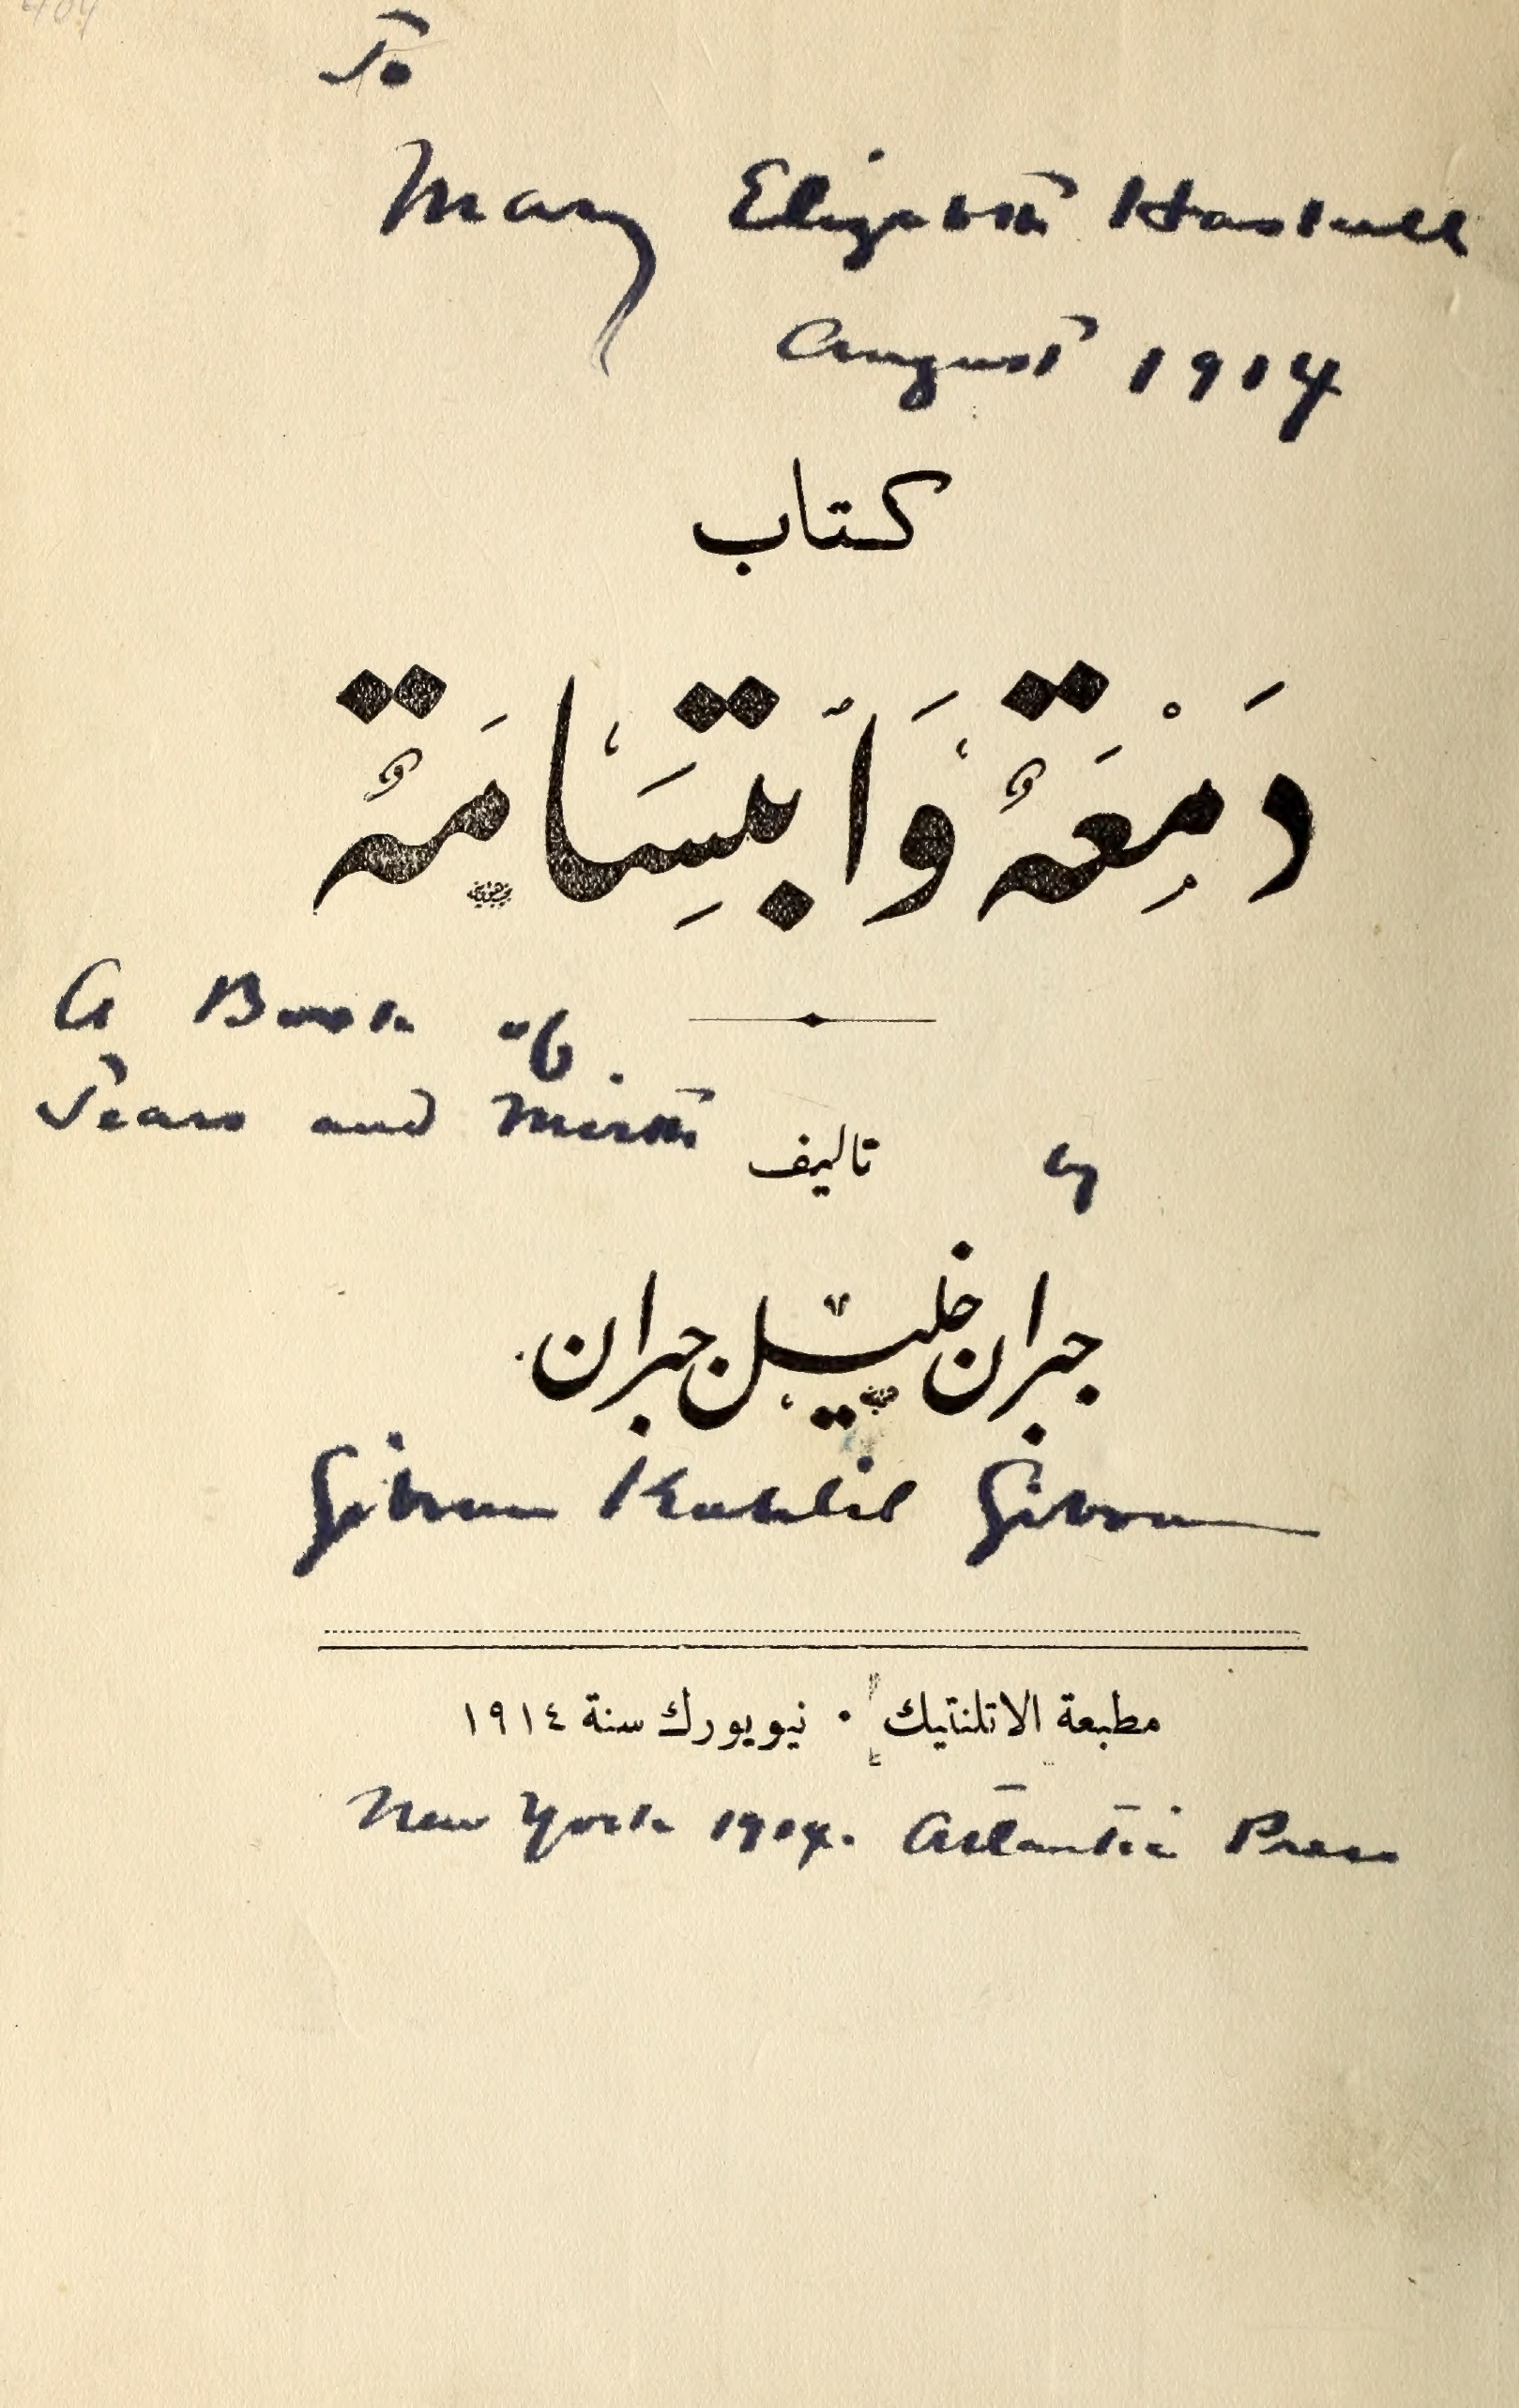 To
Mary Elizabeth Haskell
August 1914
كتاب
دَمْعَةٌ وَٱبتِسَامَةٌ
A Book of
Tears and Mirth
تاليف by
جبران خليل جبران
Gibran Kahlil Gibran
مطبعة الاتلنتيك · نيويورك سنة ١٩١٤
New York 1914. Atlantic Press